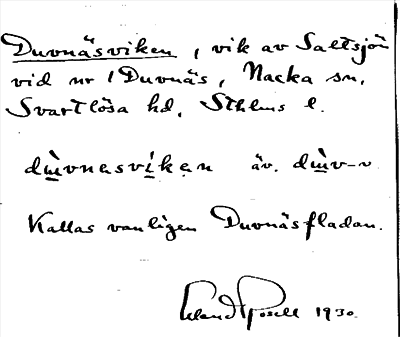 Duvnäsviken, vik av Saltsjön
vid nr 1 Duvnäs, Nacka sn,
Svartlösa hd, Sthlms l.
dɯvnasvikən äv. dɯv-v
Kallas vanligen Duvnäsfladan.
Erland Rosell 1930.